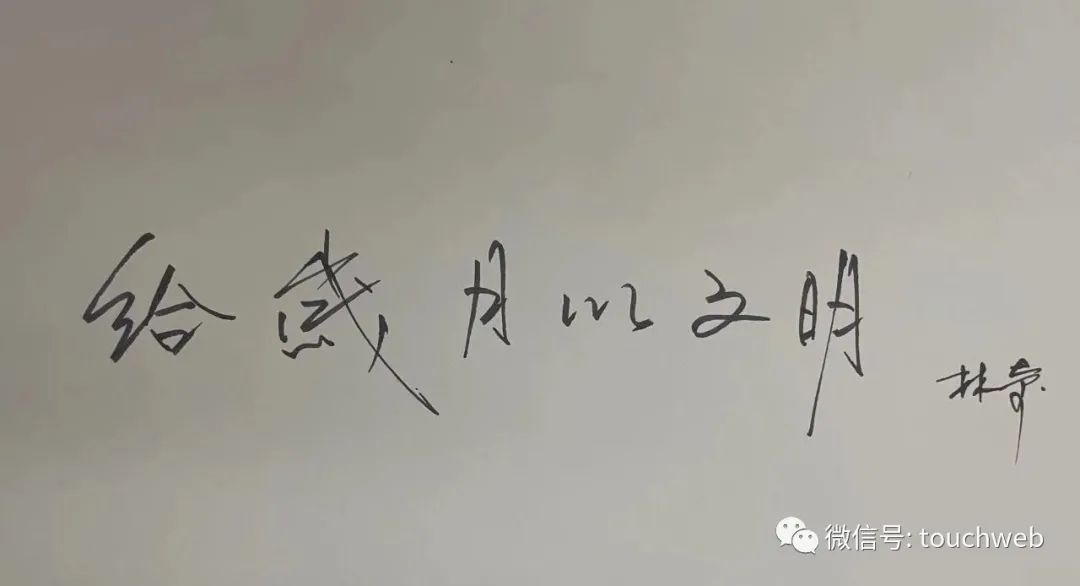 给歲月以文明
林奇
微信号: touchweb